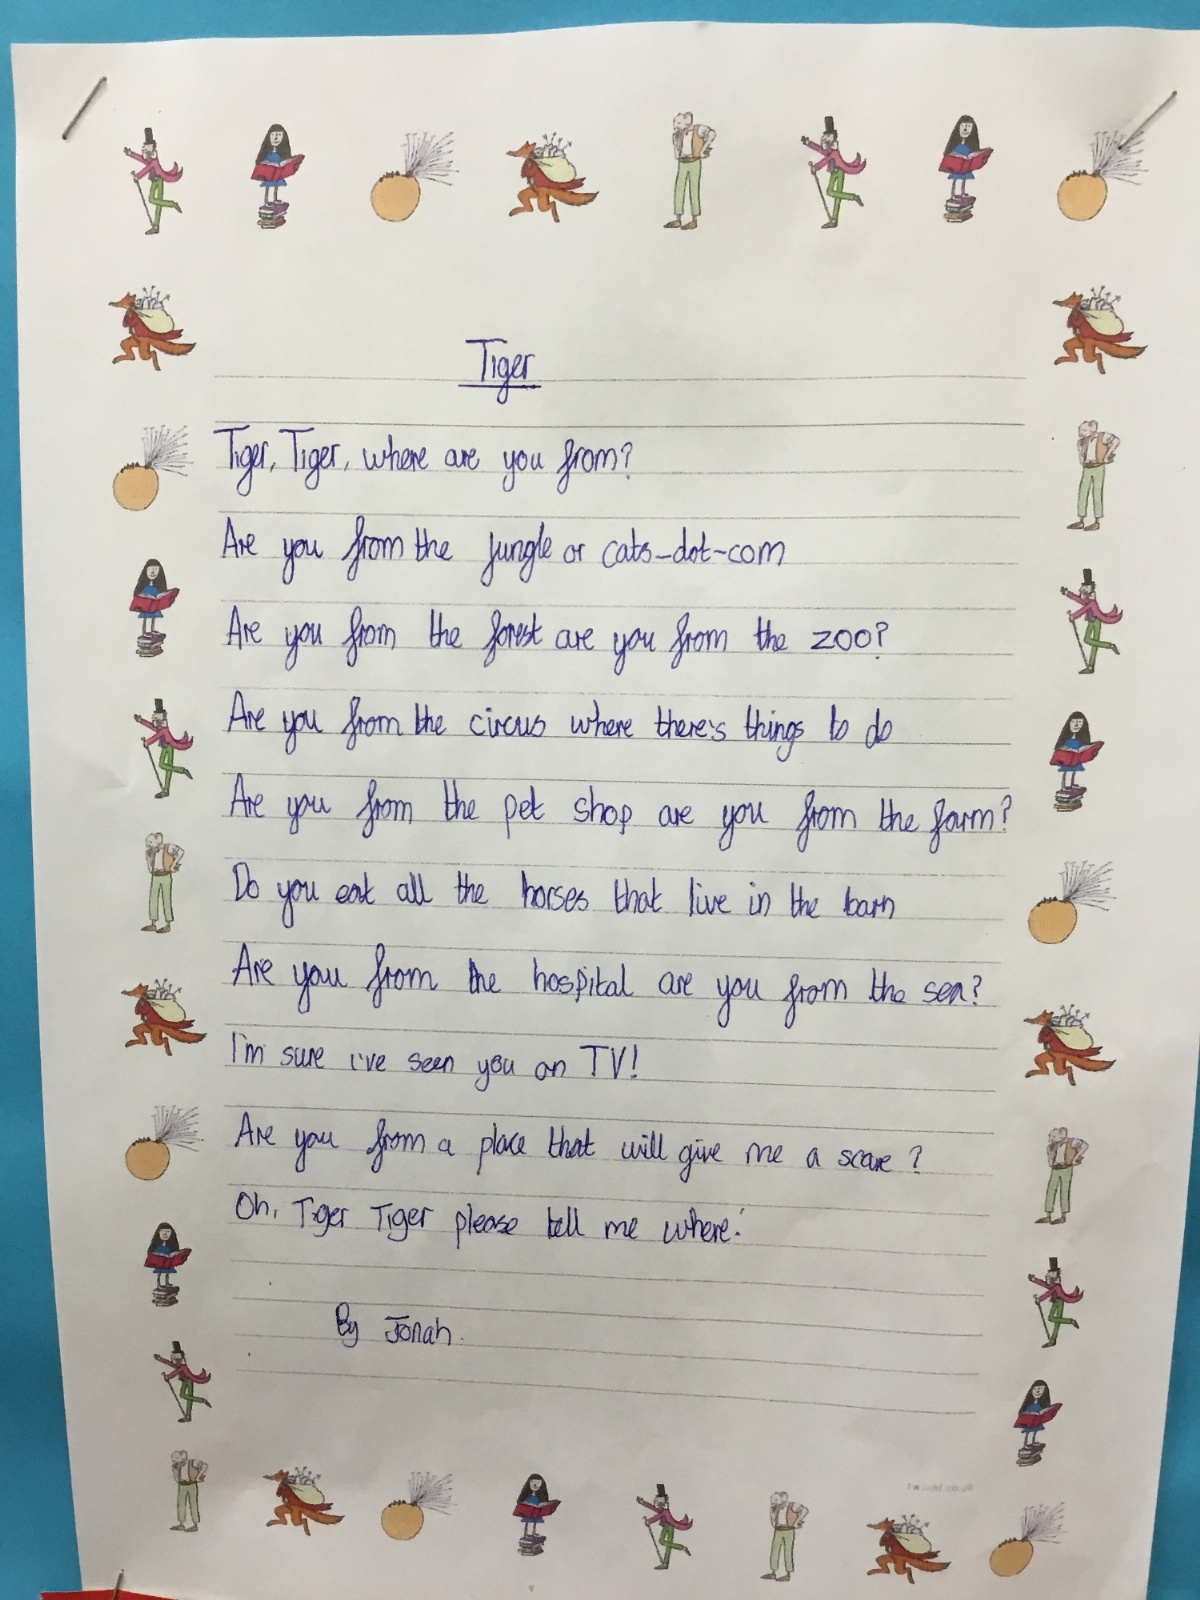 Tiger
Tiger, Tiger, where are you from?
Are you from the jungle or cats-dot-com
Are you from the forest are you from the zoo?
Are you from the circus where there's things to do
Are you from the pet shop are you from the farm?
Do you eat all the horses that live in the barn
Are you from the hospital are you from the sea?
I'm sure i've seen you on TV!
Are you from a place that will give me a scare?
Oh, Tiger Tiger please tell me where!
By Jonah.